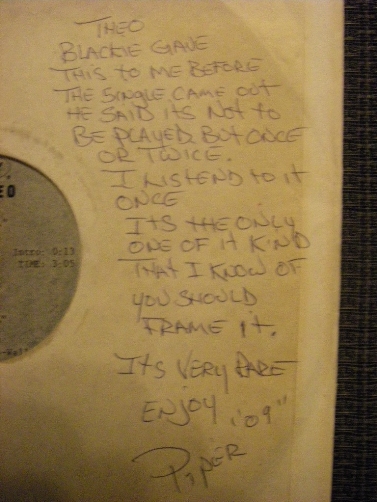 THEO
BLACKIE GAVE
THIS TO ME BEFORE
THE SINGLE CAME OUT
HE SAID ITS NOT TO
BE PLAYED BUT ONCE
OR TWICE.
I LISTEND TO IT
ONCE
ITS THE ONLY
ONE OF IT KIND
THAT I KNOW OF
YOU SHOULD
FRAME IT.
ITS VERY RARE
ENJOY "09"
PIPER
EO
Intro: 0:13
TIME: 3:05